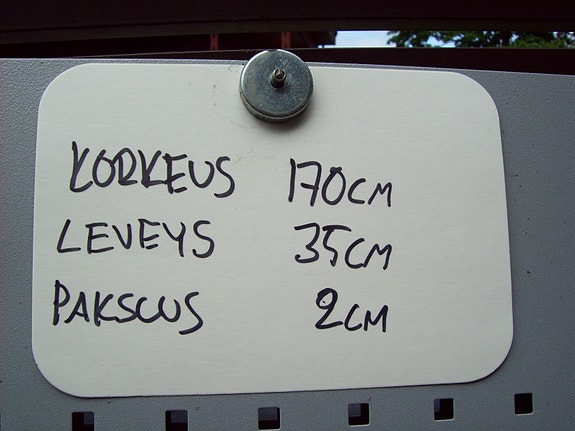 KORKEUS 170CM
LEVEYS 35CM
PAKSUUS 2CM